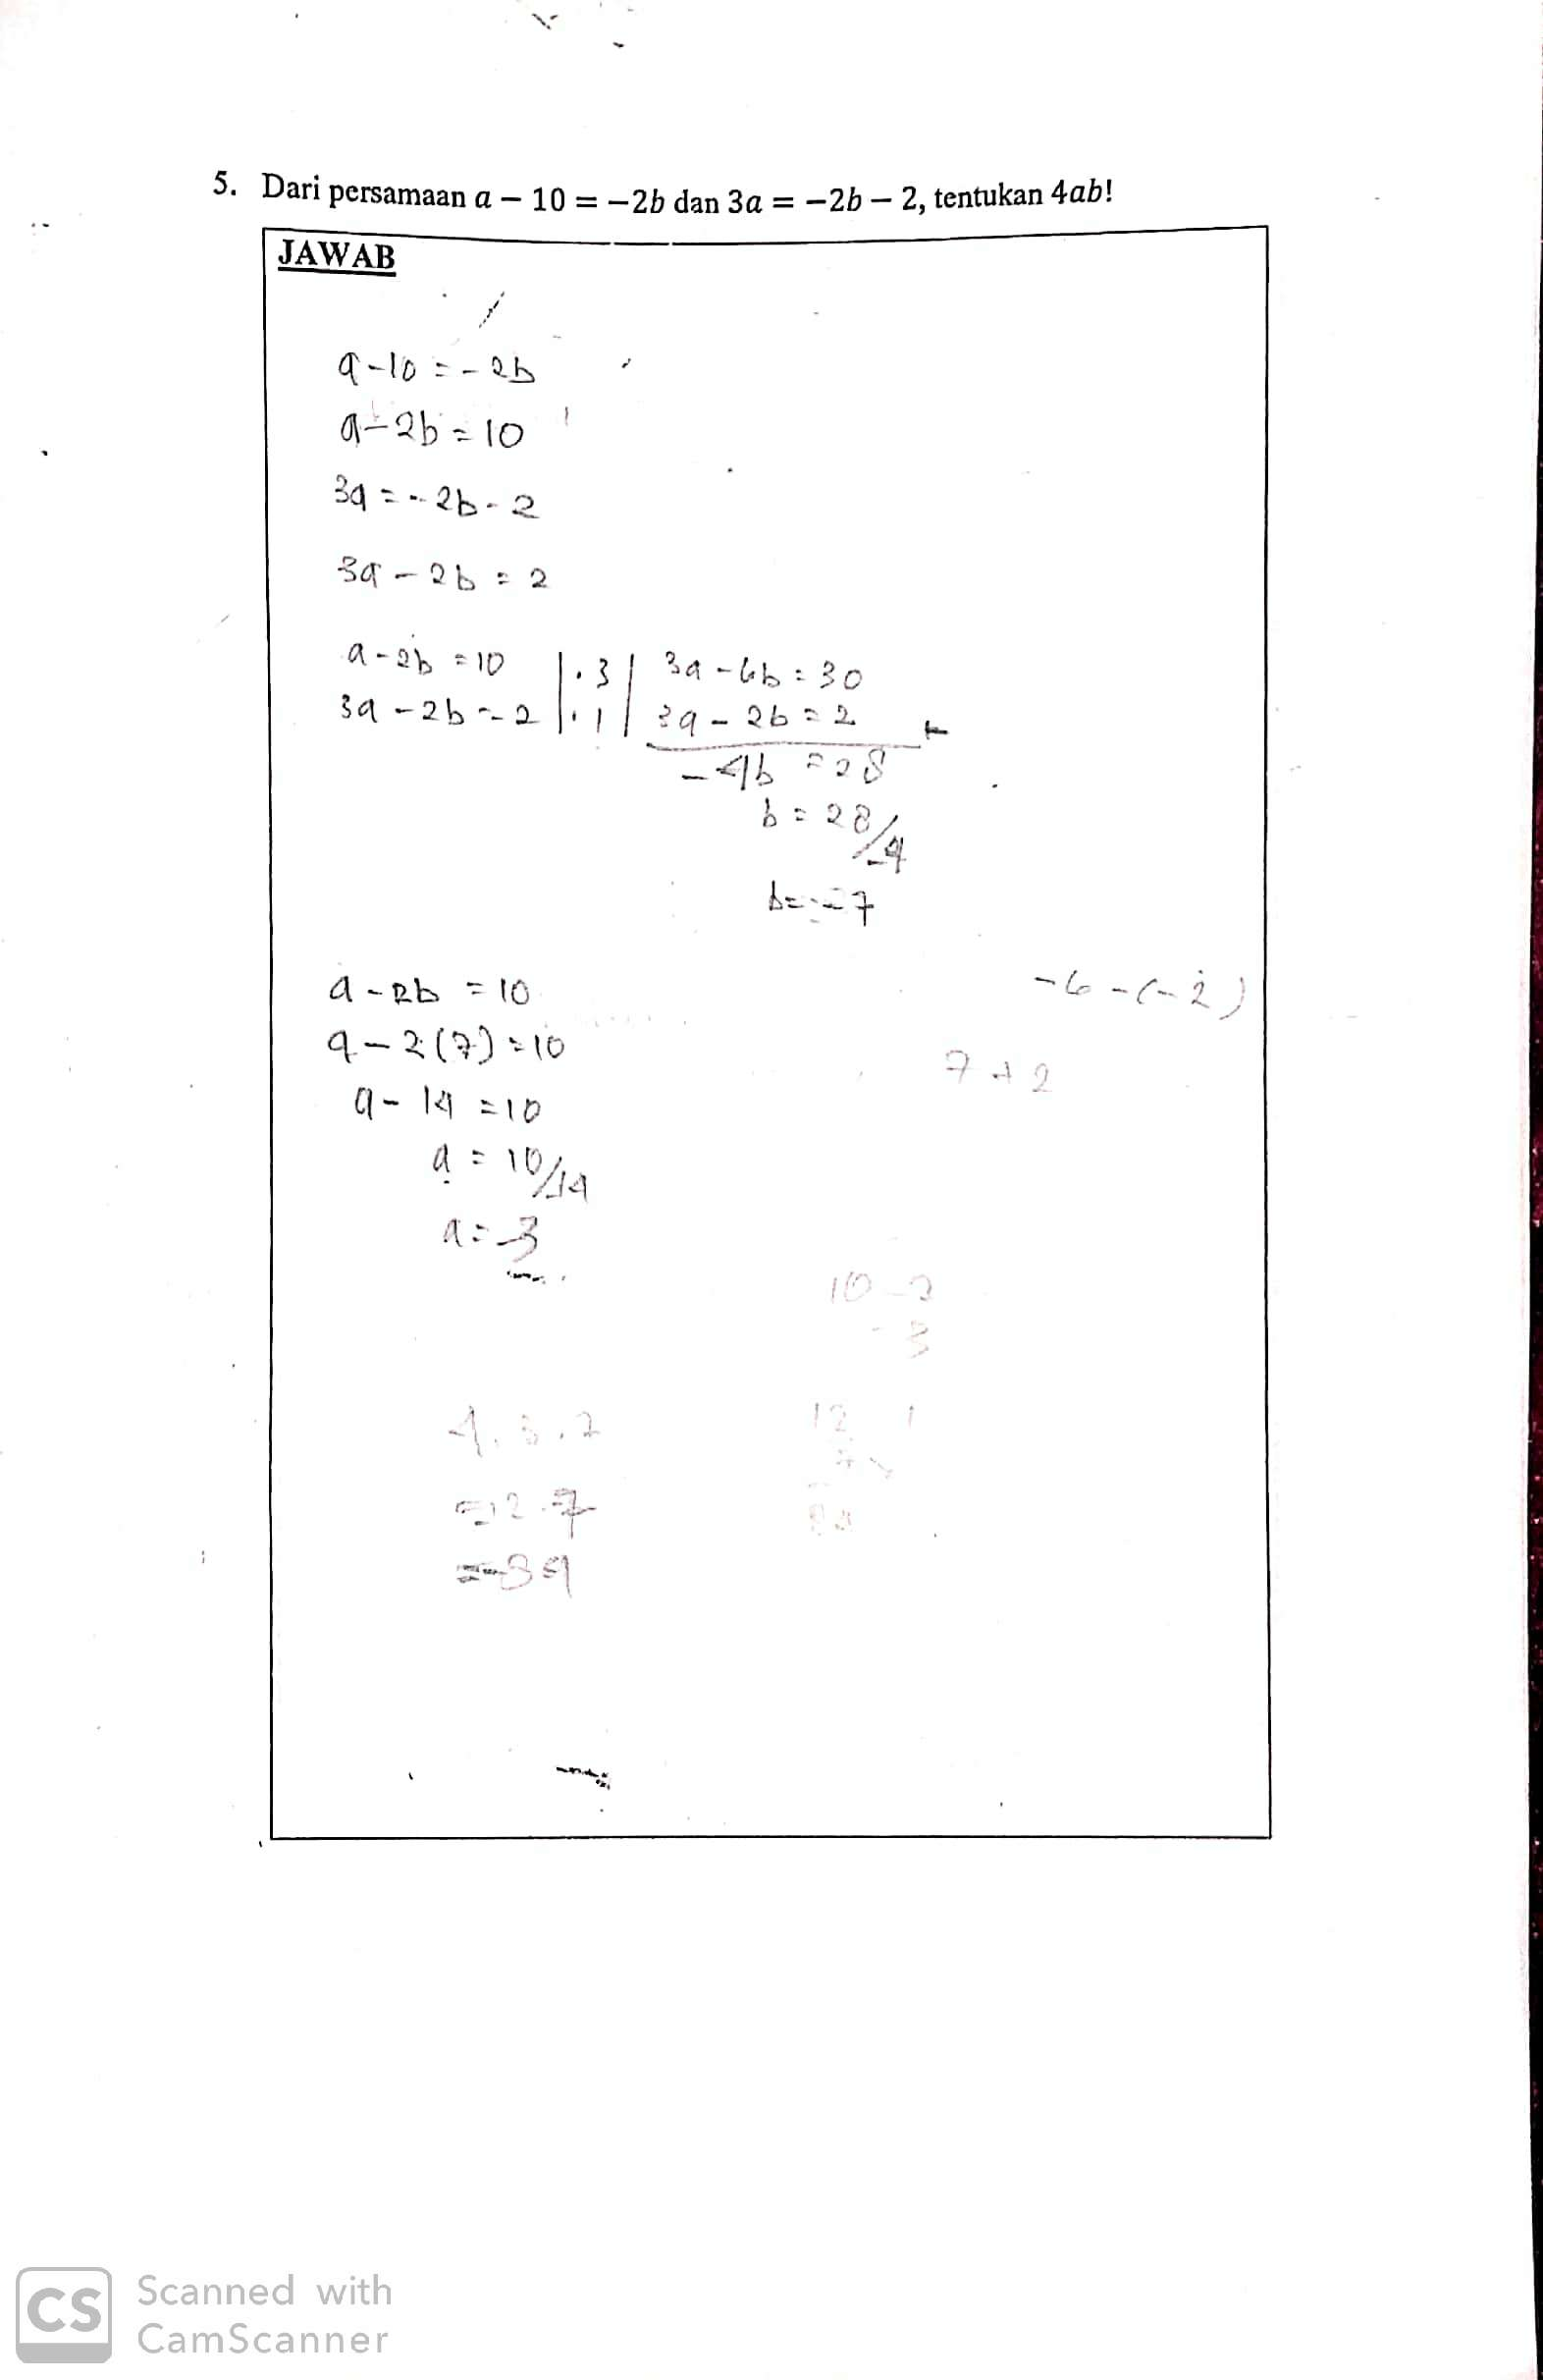 5. Dari persamaan a − 10 = −2b dan 3a = −2b − 2, tentukan 4ab!
JAWAB
a-10 = -2b
a-2b = 10
3a = -2b-2
3a - 2b = 2
a-2b = 10 | . 3 | 3a - 6b = 30
3a - 2b = 2 | . 1 | 3a - 2b = 2
-4b = 28
b = 28/-4
b = -7
a - 2b = 10
-6 - (-2)
a - 2(7) = 10
7 + 2
a - 14 = 10
a = 10/14
a = -3
4.3.7
12
=12.7
CS Scanned with
CamScanner